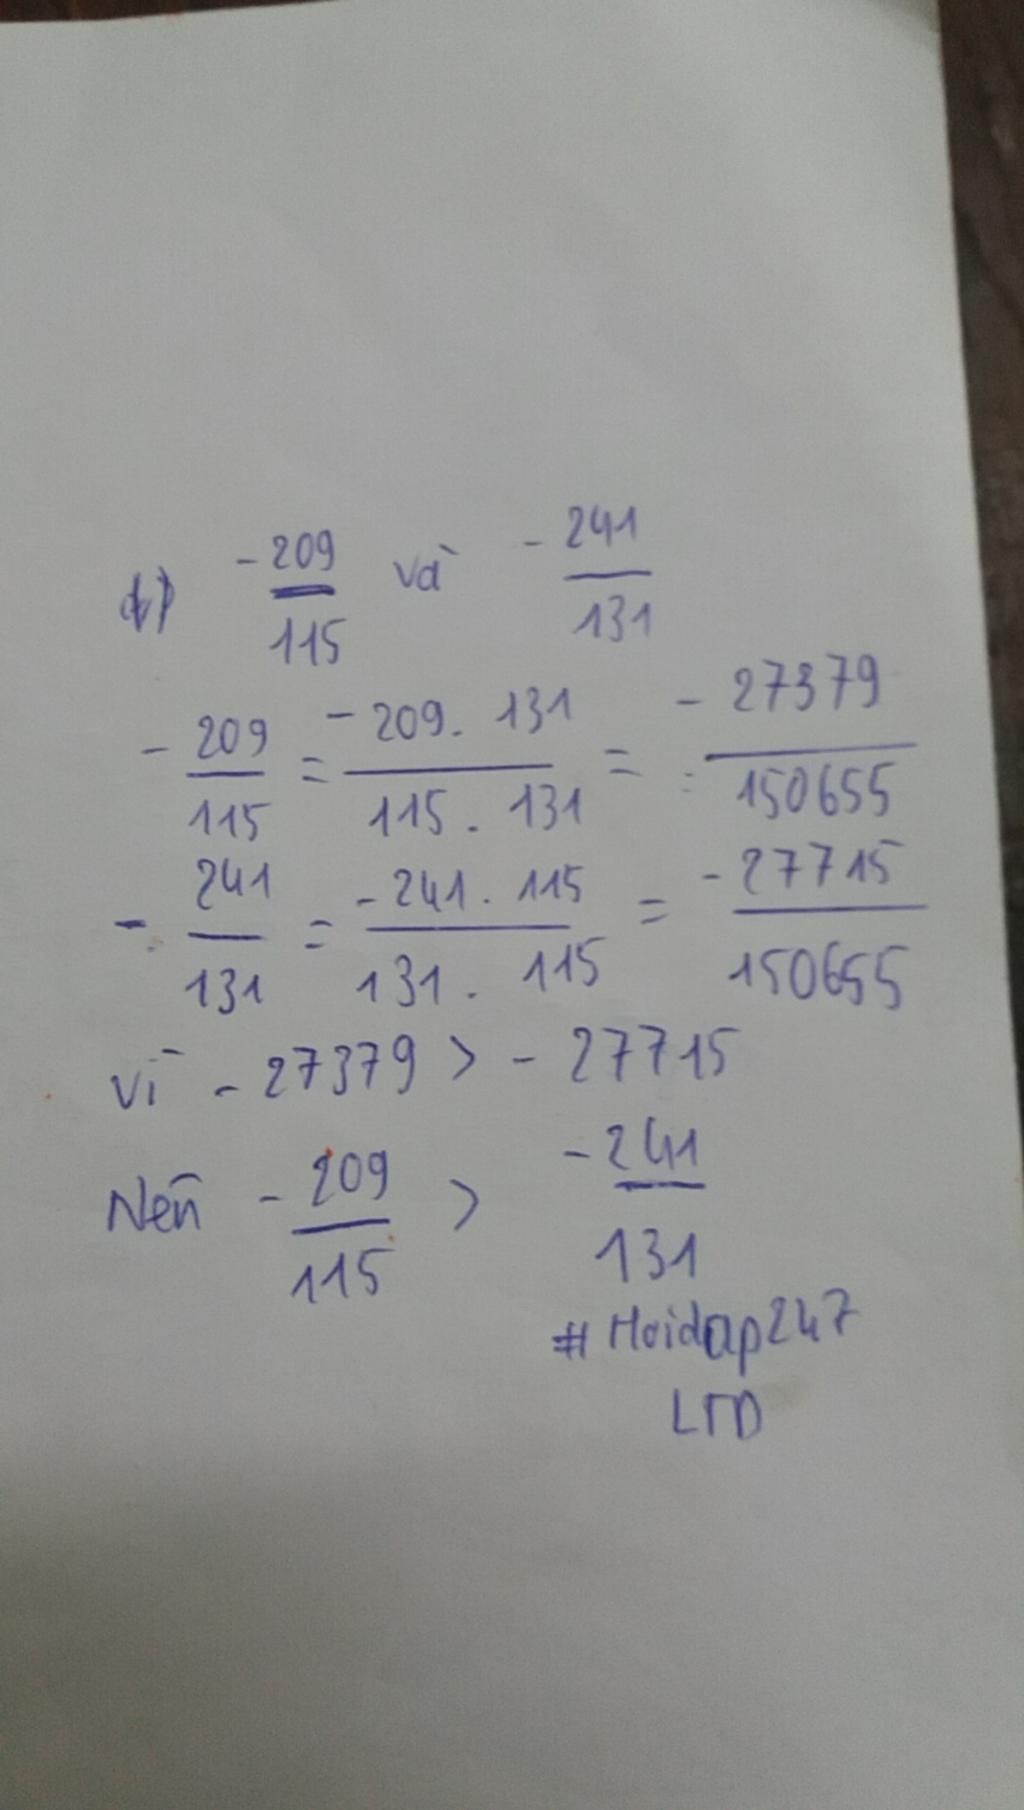 b) -209/115 và -241/131
-209/115 = -209.131/115.131 = -27379/150655
-241/131 = -241.115/131.115 = -27715/150655
Vì -27379 > -27715
Nên -209/115 > -241/131
#Hoidap247
LTD